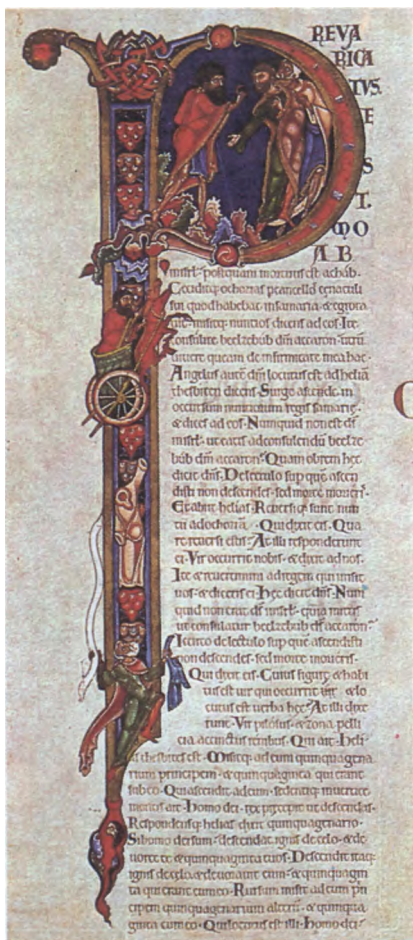 PREVA
RICA
TVS.
E
S
T.
MO
AB
inisrl'. postquam mortuus est achab.
Ceciditq; ochozias p cancellos cenaculi
sui quod habebat in samaria. & egrota
uit. misitq; nuntios dicens ad eos. Ite
consulite beelzebub dm accaron. utru
uiuere queam de infirmitate mea hac.
Angelus aute dni locutus est ad helia
thesbiten dicens. Surge ascende in
occursum nuntiorum regis samarie.
& dices ad eos. Numquid non est ds
in isrl'. ut eatis ad consulendu beelze
bub dm accaron? Quam obrem hec
dicit dns. De lectulo sup que ascen
disti non descendes. sed morte morieris.
Et abiit helias. Reuersiq; sunt nun
tii ad ochozia. Qui dixit eis. Qua
re reuersi estis? At illi responderunt
ei. Vir occurrit nobis. & dixit ad nos.
Ite & reuertimini ad regem qui misit
uos. & dicetis ei. Hec dicit dns. Num
quid non erat ds in isrl'. quia mittis
ut consulatur beelzebub ds accaron?
Iccirco de lectulo sup que ascendisti
non descendes. sed morte morieris.
Qui dixit eis. Cuius figure & habi
tus est uir qui occurrit uir & lo
cutus est uerba hec? At illi dixe
runt. Vir pilosus. & zona pelli
cia accinctus renibus. Qui ait. Heli
as thesbites est. Misitq; ad eum quinquagena
rium principem. & quinquaginta qui erant
sub eo. Qui ascendit ad eum. sedentiq; in uertice
montis ait. Homo dei. rex precepit ut descendas.
Respondensq; helias dixit quinquagenario.
Si homo dei sum. descendat ignis de celo. & de
uoret te & quinquaginta tuos. Descendit itaq;
ignis de celo. & deuorauit eum. & quinquagin
ta qui erant cum eo. Rursum misit ad eum prin
cipem quinquagenarium alteru. & quinqua
ginta cum eo. Qui locutus est illi. Homo dei.